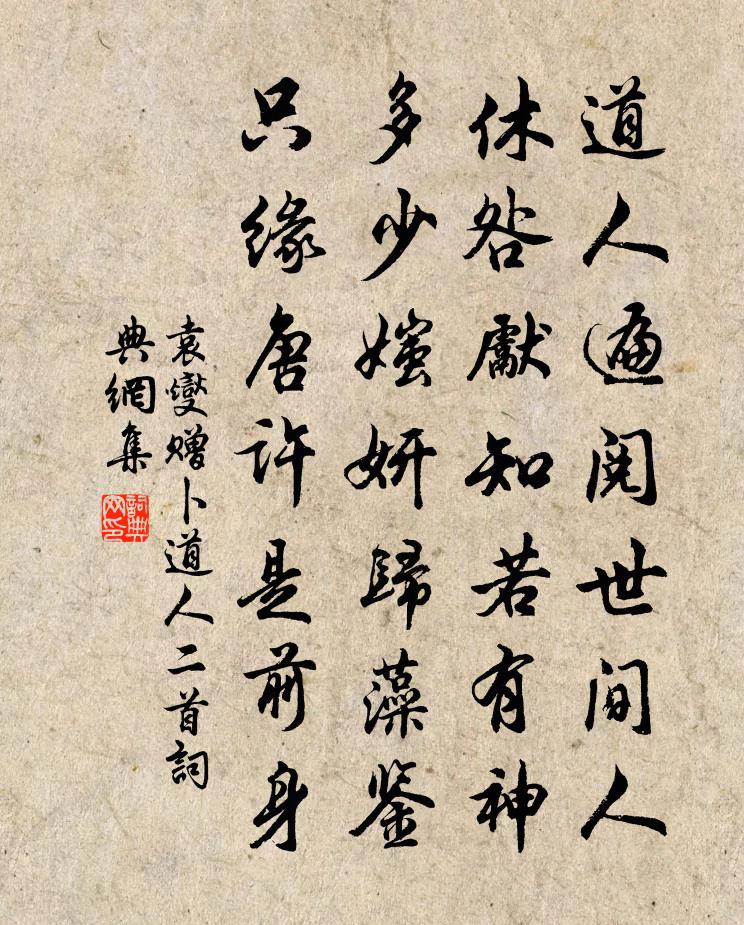 道人遍阅世间人
休咎獻知若有神
多少媸妍歸藻鉴
只缘唐许是前身
袁燮赠卜道人二首詞
典網集
詞典
网印